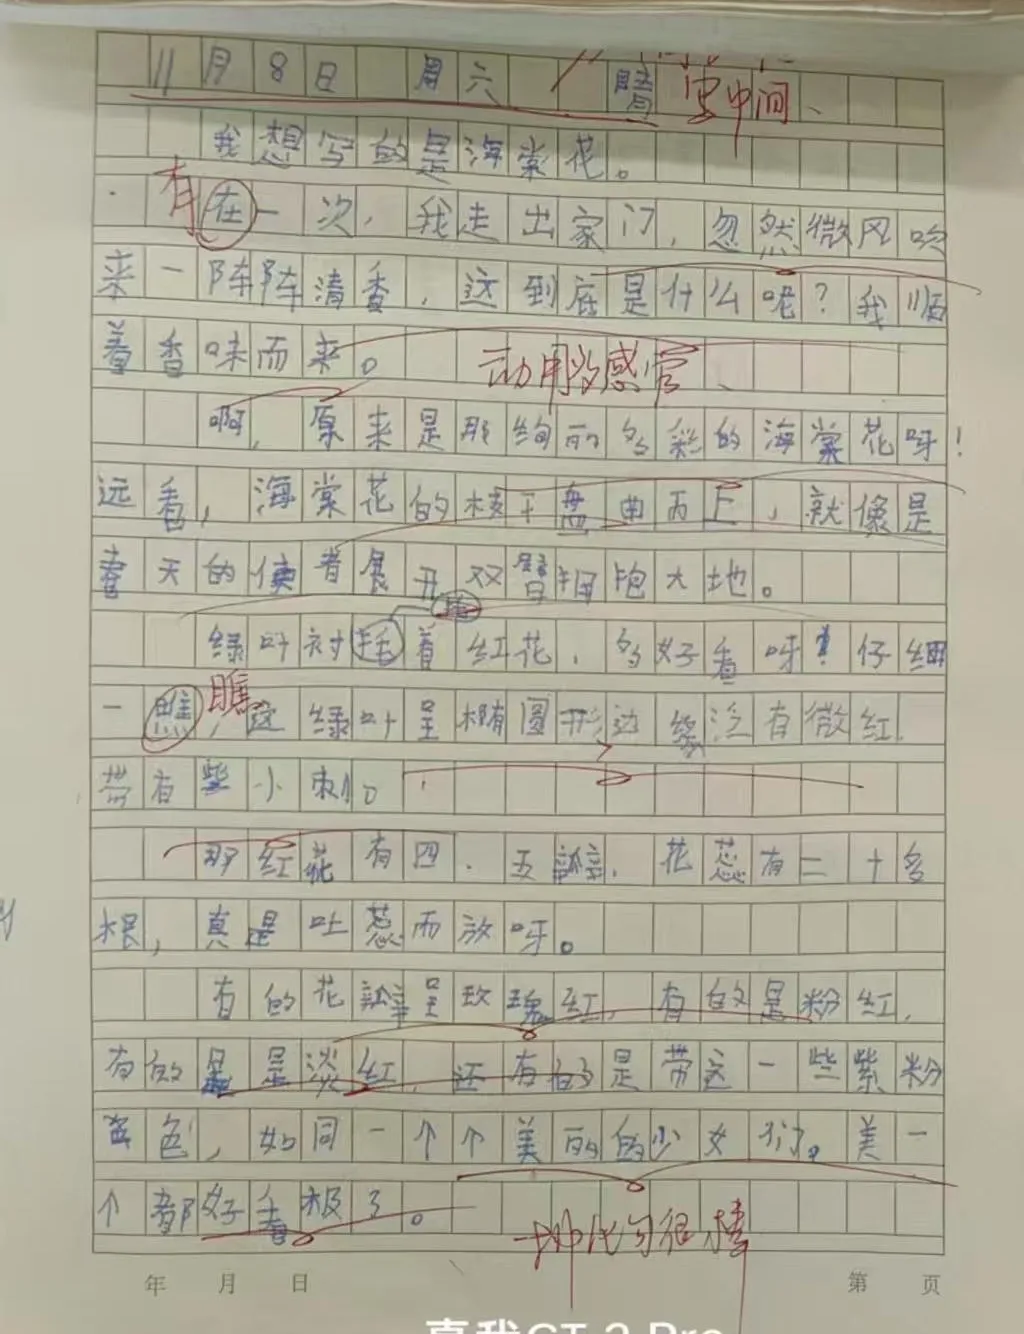 11月8日 周六 晴 写中间、
我想写的是海棠花。
有
在一次，我走出家门，忽然微风吹
来一阵阵清香，这到底是什么呢？我顺
着香味而来。
动用多感官、
啊，原来是那绚丽多彩的海棠花呀！
远看，海棠花的枝干盘曲而上，就像是
春天的使者展开双臂拥抱大地。
绿叶衬着红花，多好看呀！仔细
一瞧，这绿叶呈椭圆形边缘泛有微红，
瞧
带有些小刺。
那红花有四、五瓣，花蕊有二十多
根，真是吐蕊而放呀。
有的花瓣呈玫瑰红，有的是粉红，
有的是淡红，还有的是带这一些紫粉
色，如同一个个美丽的少女们。美一
个都好看极了。
排比句很棒
年 月 日 第 页
真我GT 2 Pro